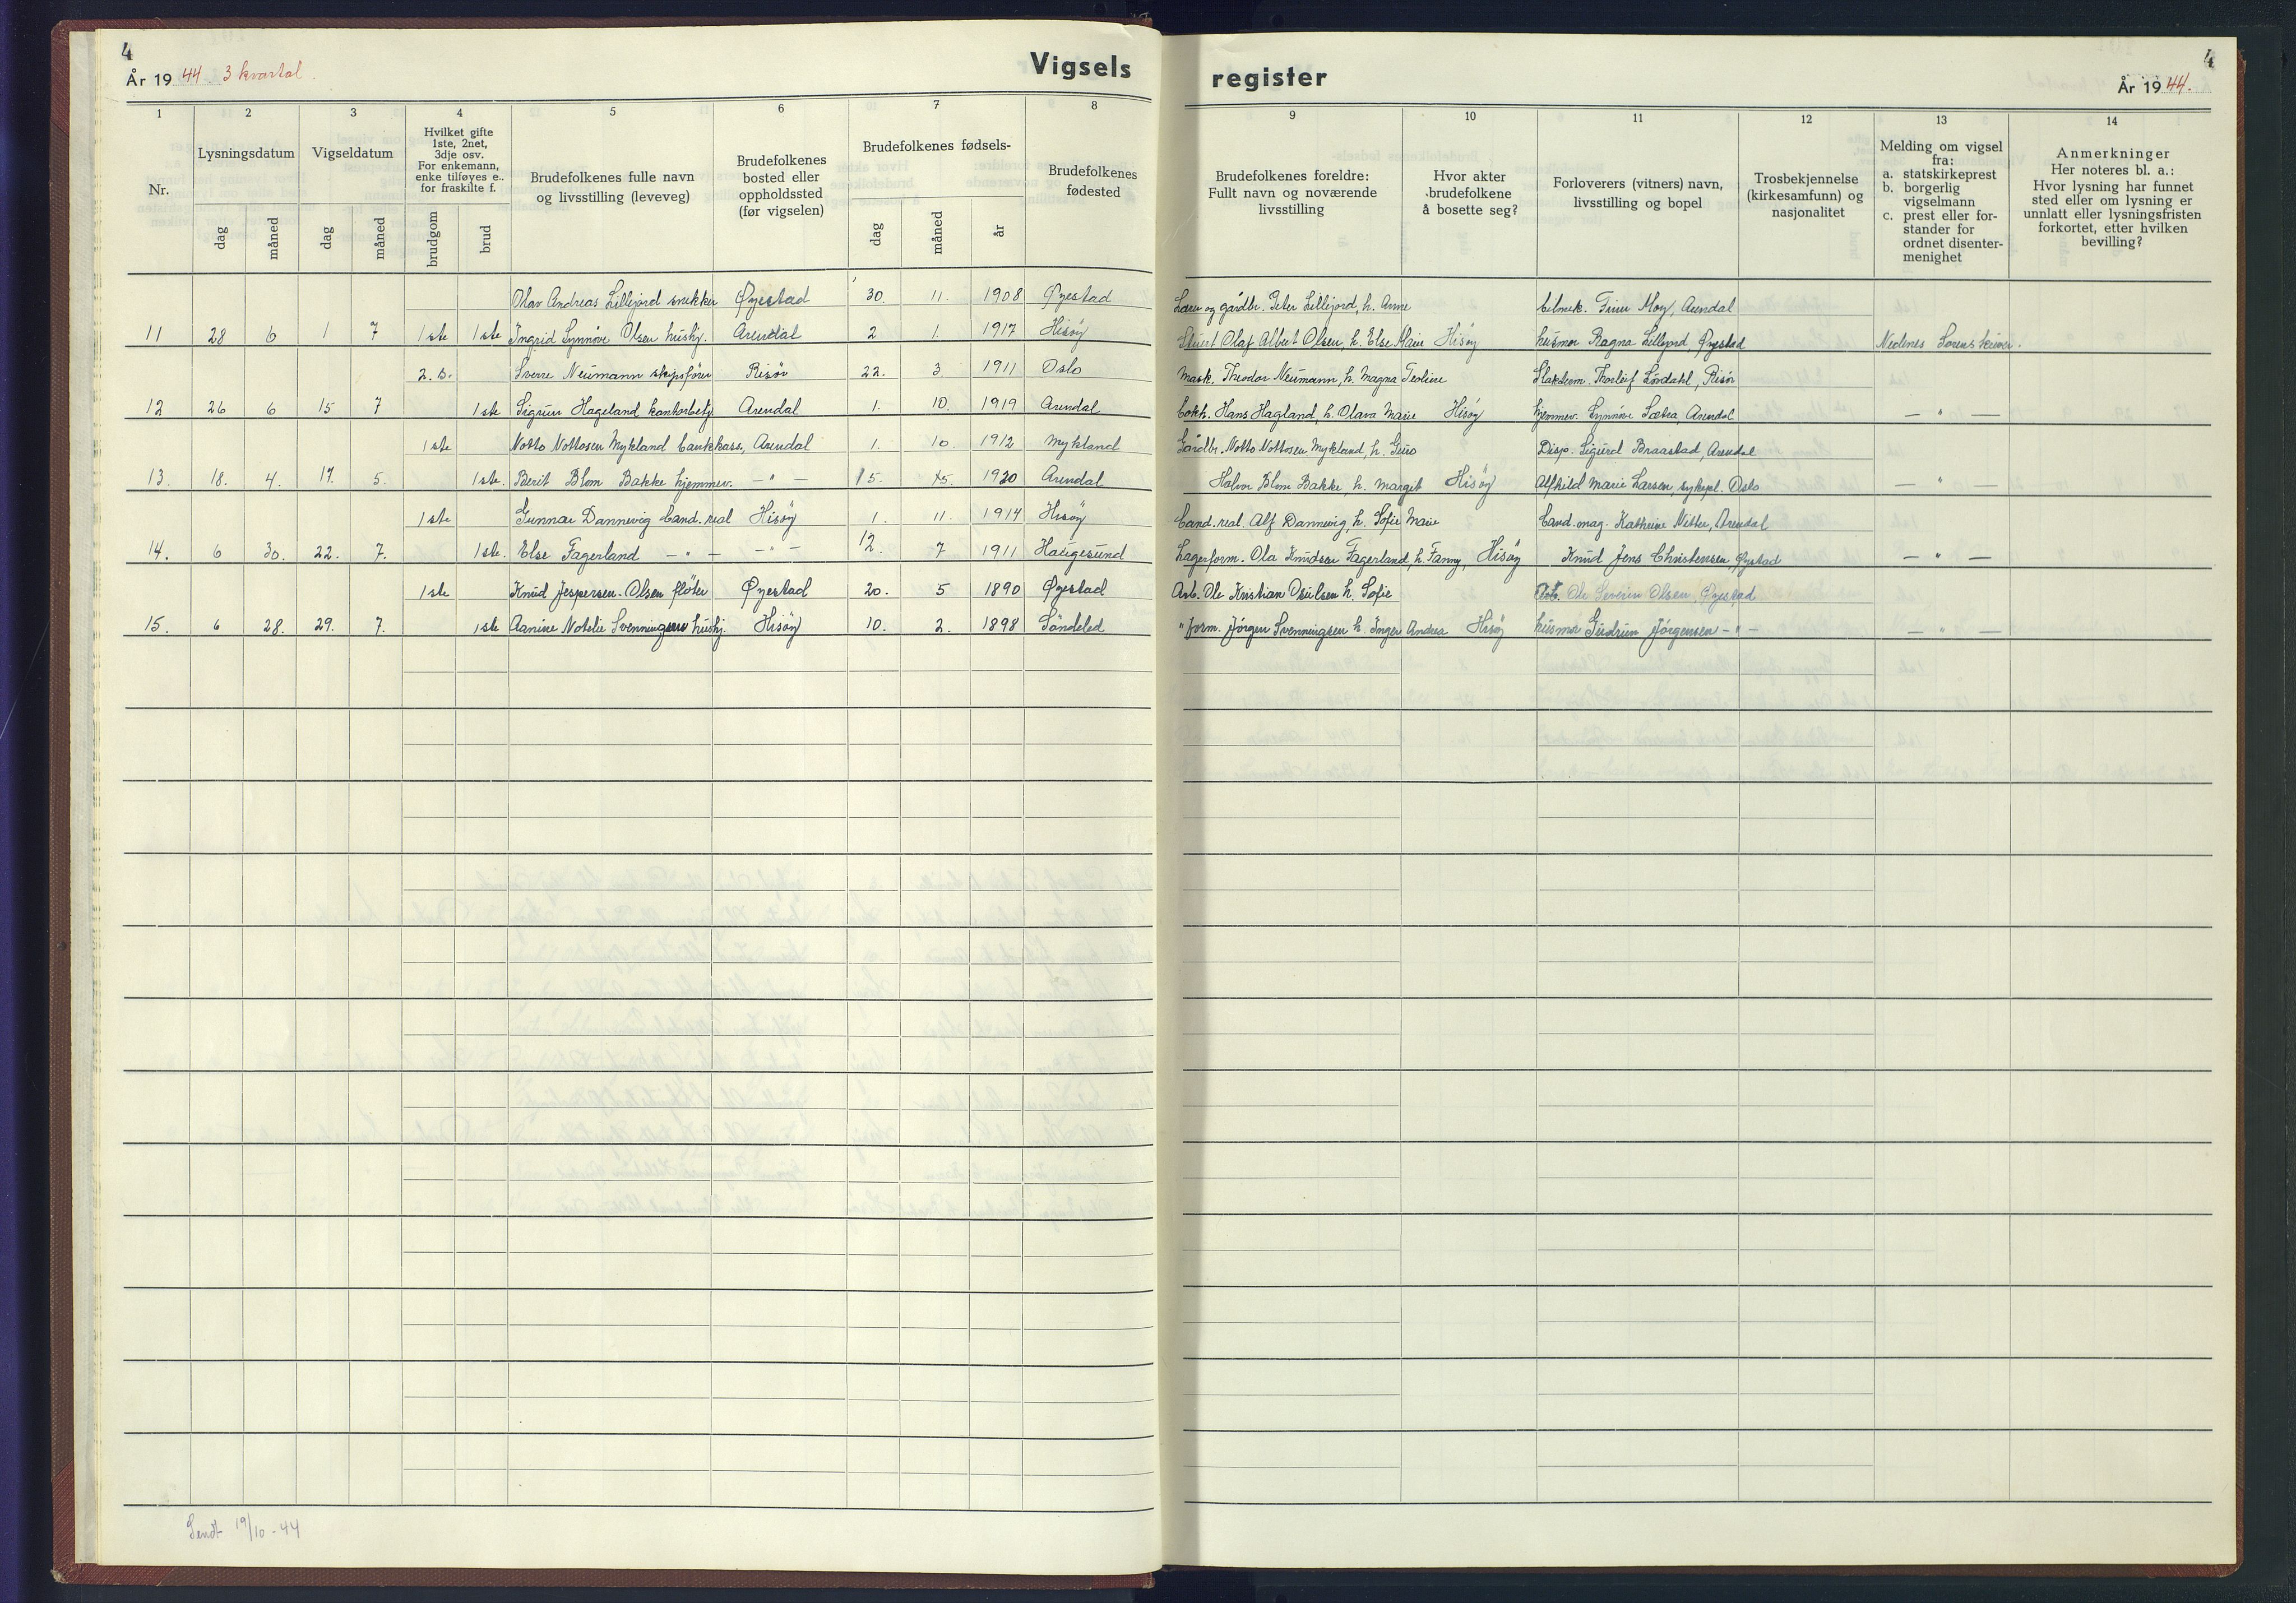 4
År 19 44. 3 kvartal.
Vigsels
1 2 3 4 5 6 7 8
Nr.
Lysningsdatum
dag måned
Vigseldatum
dag måned
Hvilket gifte
1ste, 2net,
3dje osv.
For enkemann,
enke tilføyes e..
for fraskilte f.
brudgom brud
Brudefolkenes fulle navn
og livsstilling (leveveg)
Brudefolkenes
bosted eller
oppholdssted
(før vigselen)
Brudefolkenes fødsels-
dag måned år
Brudefolkenes
fødested
Olav Andreas Lillejord snekker Øyestad 30. 11. 1908 Øyestad
11 28 6 1 7 1ste 1ste Ingrid Synnøve Olsen hushj. Arendal 2 1. 1917 Hisöy
2. Sverre Neumann skipsfører Risör 22. 3 1911 Oslo
12 26 6 15 7 1ste Sigrun Hageland kontorbetj. Arendal 1. 10. 1919 Arendal
1ste Notto Nottosen Mykland bankkass., Arendal 1. 10. 1912 Mykland
13. 18. 4. 17. 5. 1ste. Berit Blom Bakke hjemmev. — " — 15. 1920 Arendal
1ste Gunnar Dannevig Cand. real Hisöy 1. 11. 1914 Hisöy
14. 6 30. 22. 7. 1ste. Else Fagerland — " — — " — 12. 7 1911 Haugesund
1ste Knud Jespersen-Olsen fløter Øyestad 20. 5 1890 Øyestad
15. 6 28. 29. 7. 1ste Aanine Notelie Svenningsen hushj. Hisöy 10. 2. 1898 Söndeled
Sendt 19/10-44
4
register
År 19 44.
9 10 11 12 13 14
Brudefolkenes foreldre:
Fullt navn og noværende
livsstilling
Hvor akter
brudefolkene
å bosette seg?
Forloverers (vitners) navn,
livsstilling og bopel
Trosbekjennelse
(kirkesamfunn) og
nasjonalitet
Melding om vigsel
fra:
a. statskirkeprest
b. borgerlig
vigselmann
c. prest eller for-
stander for
ordnet disenter-
menighet
Anmerkninger
Her noteres bl. a.:
Hvor lysning har funnet
sted eller om lysning er
unnlatt eller lysningsfristen
forkortet, etter hvilken
bevilling?
og gårdbr. Peter Lillejord, h. Anne Finn Moy, Arendal
Stuert Olaf Albert Olsen, h. Else Marie Hisöy husmor Ragna Lillejord, Øyestad Nedenes Sorenskriver.
Mask. Theodor Neumann, h. Magna Teoline Thorleif Lövdahl, Risör
Hans Hagland, h. Olava Marie Hisöy hjemmev. Synnöve Sætra, Arendal — " —
Gårdbr. Notto Nottosen Mykland, h. Guro Disp. Sigurd Braastad, Arendal
Halvor Blom Bakke, h. Margit Hisöy Alfhild Marie Larsen, sykepl. Oslo — " —
Cand. real. Alf Dannevig, h. Sofie Marie Cand. mag. Kathrine Vitter, Arendal
Lagerform. Ola Knudsen Fagerland, h. Fanny, Hisöy Knud Jens Christensen, Øyestad — " —
Arb. Ole Kristian h. Sofie Arb. Ole Severin Olsen, Øyestad
" form. Jörgen Svenningsen h. Inger Andrea Hisöy husmor Gudrun Jörgensen — " — — " —